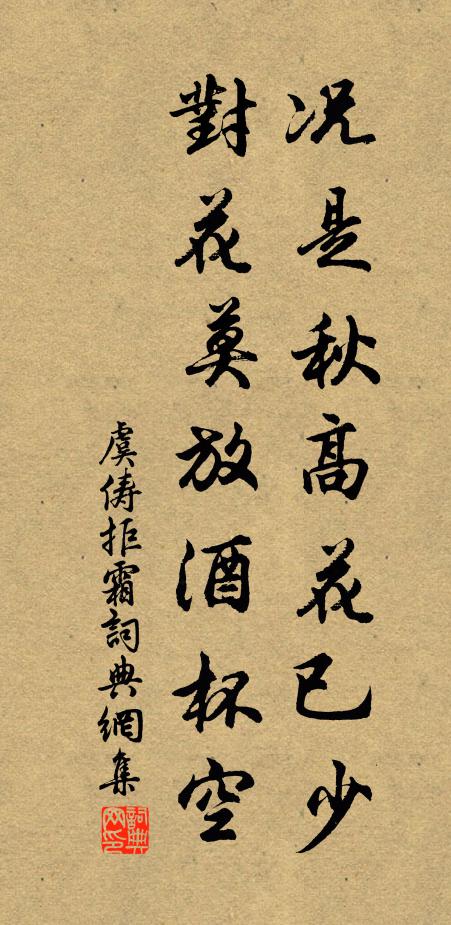 况是秋高花已少
對花莫放酒杯空
虞俦拒霜詞典網集
詞典網印